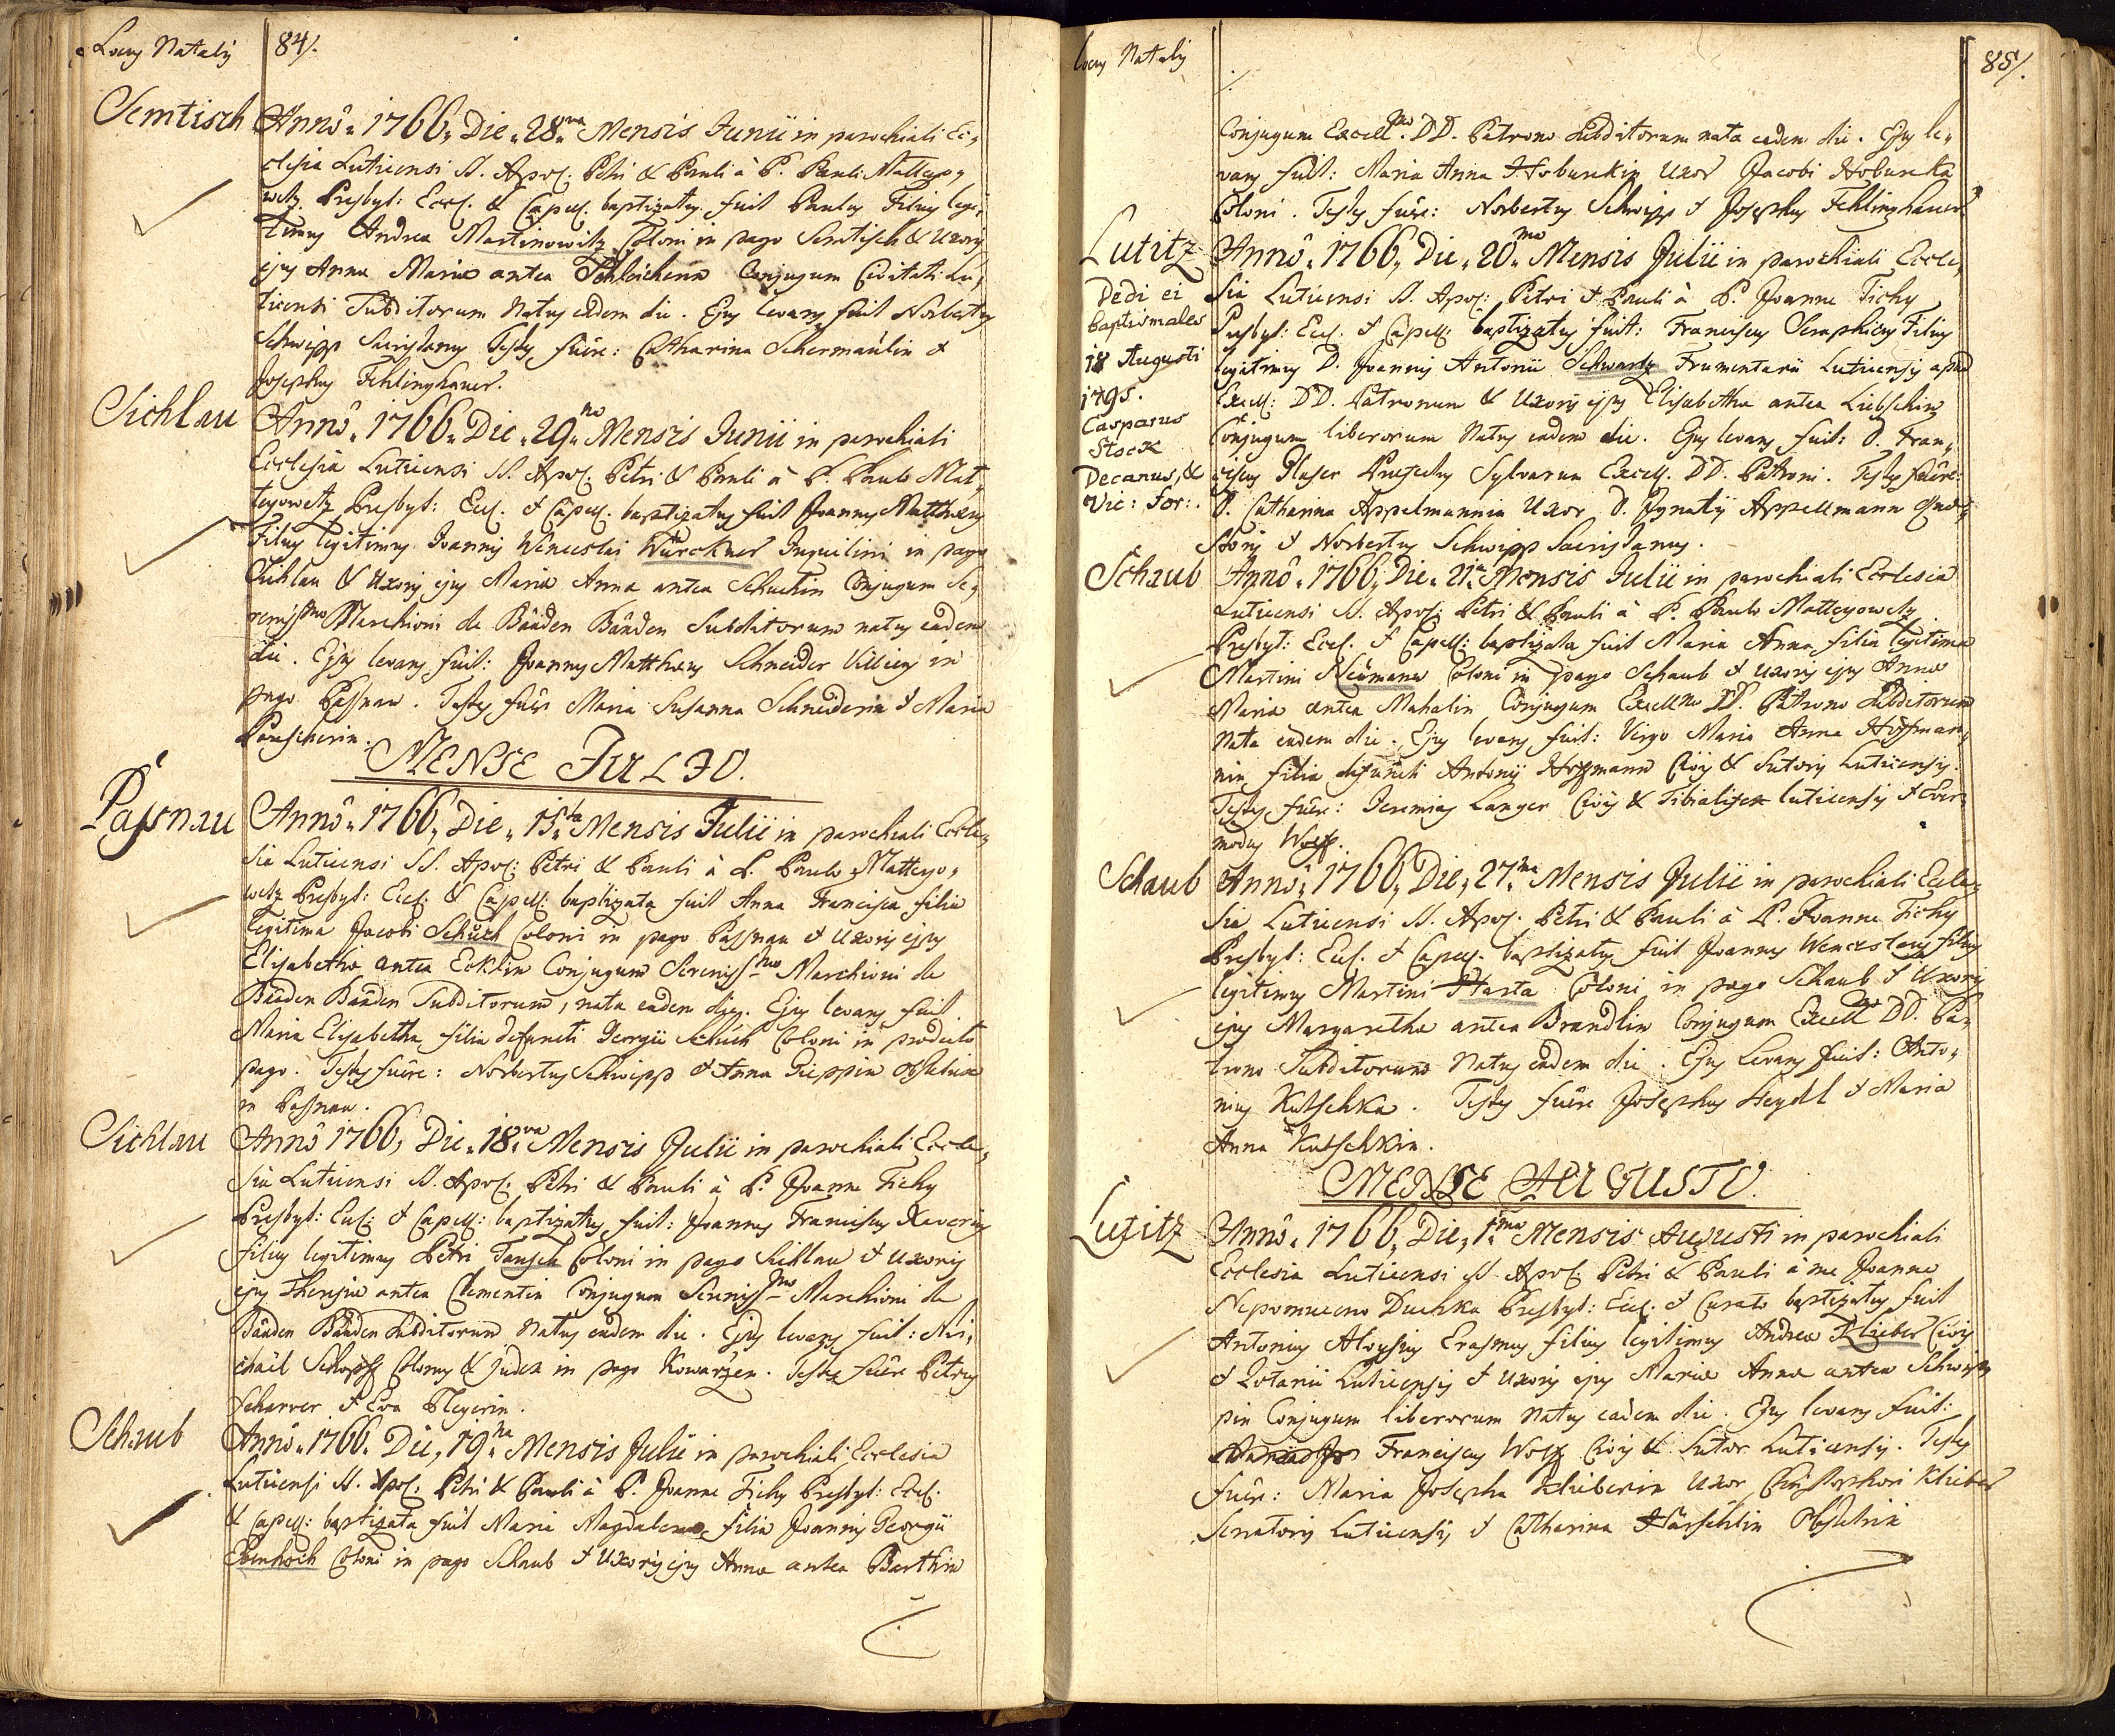 Locus Natalis 84/.
Semtisch Anno. 1766. Die. 28va Mensis Junii in parochiali Ec,
clesia Luticensi SS. Apos: Petri & Pauli à P. Pauli Matteyo,
wetz Presbyt: Eccl. & Capell. baptizatus fuit Paulus Filius legi,
timus Andrea Martinowitz Coloni in pago Semtisch & Uxoris
ejus Anna Maria antea Conjugum Civitati Lu,
ticensi Subditorum Natus eadem die. Ejus levans fuit Norbertus
Schwipp Sacristanus Testes fuêre: Catharina Schermaulin &
Josephus Fehlinghauer.
Sichlau Anno. 1766. Die. 29no Mensis Junii in parochiali
Ecclesia Luticensi SS. Apos: Petri & Pauli à P. Paulo Mat,
teyowetz Presbyt: Eccl. & Capell. baptizatus fuit Joannes Mattheus
Filius legitimus Joannis Wenceslai Würckner Inquilini in pago
Sichlau & Uxoris ejus Maria Anna antea Schuchin Conjugum Se,
renissmo Marchioni de Bâaden Bâaden Subditorum natus eadem
die. Ejus levans fuit: Joannes Mattheus Schneider Villicus in
pago Passnau. Testes fuêre Maria Susanna Schneiderin & Maria
MENSE JULIO.
Passnau Anno. 1766. Die. 15ta Mensis Julii in parochiali Eccle,
sia Luticensi SS. Apos: Petri & Pauli à P. Paulo Matteyo,
wetz Presbyt: Eccl. & Capell: baptizata fuit Anna Francisca filia
legitima Jacobi Schuch Coloni in pago Passnau & Uxoris ejus
Elisabetha antea Ecklin Conjugum Serenissmo Marchioni de
Bâaden Bâaden Subditorum, nata eadem die. Ejus levans fuit
Maria Elisabetha filia defuncti Georgii Schuch Coloni in prædicto
pago. Testes fuêre: Norbertus Schwipp & Anna Obstetrix
in Passnau.
Sichlau Anno 1766, Die. 18va Mensis Julii in parochiali Eccle,
sia Luticensi SS. Apos: Petri & Pauli à P. Joanne Tichy
Presbyt: Eccl: & Capell: baptizatus fuit: Joannes Franciscus Xaverius
filius legitimus Petri Tausch Coloni in pago Sichlau & Uxoris
ejus Theresia antea Clementin Conjugum Serenissmo Marchioni de
Bâaden Bâaden Subditorum Natus eadem die. Ejus levans fuit: Mi,
chaël Schopff Colonus & Judex in pago Kowarzen. Testes fuêre Petrus
Scharrer & Eva
Schaub Anno. 1766. Die, 19na Mensis Julii in parochiali Ecclesia
Luticensi SS. Apos: Petri & Pauli à P. Joanne Tichy Presbyt: Eccl:
& Capell: baptizata fuit Maria Magdalena filia Joannis Georgii
Coloni in pago Schaub & Uxoris ejus Anna antea Barthin
Locus Natalis 85/.
Conjugum Excellmo. DD. Patrono Subditorum nata eadem die. Ejus le,
vans fuit: Maria Anna Hoburckin Uxor Jacobi Hoburcka
Coloni. Testes fuêre: Norbertus Schwipp & Josephus Fehlinghauer.
Lutitz Anno. 1766, Die. 20ma Mensis Julii in parochiali Eccle,
sia Luticensi SS. Apos: Petri & Pauli à P. Joanne Tichy
Presbyt: Eccl. & Capell: baptizatus fuit: Franciscus Seraphicus Filius
legitimus D. Joannis Antonii Schwartz Frumentarii Luticensis apud
Excell: DD. Patronum & Uxoris ejus Elisabetha antea Liebschin
Conjugum liberorum Natus eadem die. Ejus levans fuit: D. Fran,
ciscus Glaser Præfectus Sylvarum Excell. DD. Patroni. Testes fuêre:
D. Catharina Appelmannin Uxor D. Ignatii Appellmann Quæ,
storis & Norbertus Schwipp Sacristanus.
Dedi ei
baptismales
18 Augusti
1795.
Casparus
Stock
Decanus, &
Vic: For:.
Schaub Anno. 1766, Die. 21a Mensis Julii in parochiali Ecclesia
Luticensi SS. Apos: Petri & Pauli à P. Paulo Matteyowetz
Presbyt: Eccl. & Capell: baptizata fuit Maria Anna filia legitima
Martini Neümann Coloni in pago Schaub & Uxoris ejus Anna
Maria antea Mahalin Conjugum Excellmo DD. Patrono Subditorum
Nata eadem die. Ejus levans fuit: Virgo Maria Anna Hoffman,
nin filia defuncti Antonii Hoffmann Civis & Sutoris Luticensis.
Testes fuêre: Jeremias Langer Civis & Tibialifex luticensis & Ever,
modus Wolff.
Schaub Anno. 1766, Die, 27ma Mensis Julii in parochiali Eccle,
sia Luticensi SS. Apos. Petri & Pauli à P. Joanne Tichy
Presbyt: Eccl. & Capell. baptizatus fuit Joannes Wenceslaus filius
legitimus Martini Harta Coloni in pago Schaub & Uxoris
ejus Margaretha antea Brandlin Conjugum Excellmo DD. Pa,
trono Subditorum Natus eadem die. Ejus Levans fuit: Anto,
nius Kutschka. Testes fuêre Josephus Heydl & Maria
Anna Kutschkin.
MENSE AUGUSTO.
Lutitz Anno. 1766, Die, 1ma Mensis Augusti in parochiali
Ecclesia Luticensi SS. Apos: Petri & Pauli à me Joanne
Nepomuceno Duchka Presbyt: Eccl. & Curato baptizatus fuit
Antonius Aloysius Erasmus filius legitimus Andrea Klieber Civis
& Lotarii Luticensis & Uxoris ejus Maria Anna antea Schwip,
pin Conjugum liberorum Natus eadem die. Ejus levans fuit:
Franciscus Wolff Civis & Sutor Luticensis. Testes
fuêr: Maria Josepha Klieberin Uxor Christophori Klieber
Senatoris Luticensis & Catharina Härschlin Obstetrix